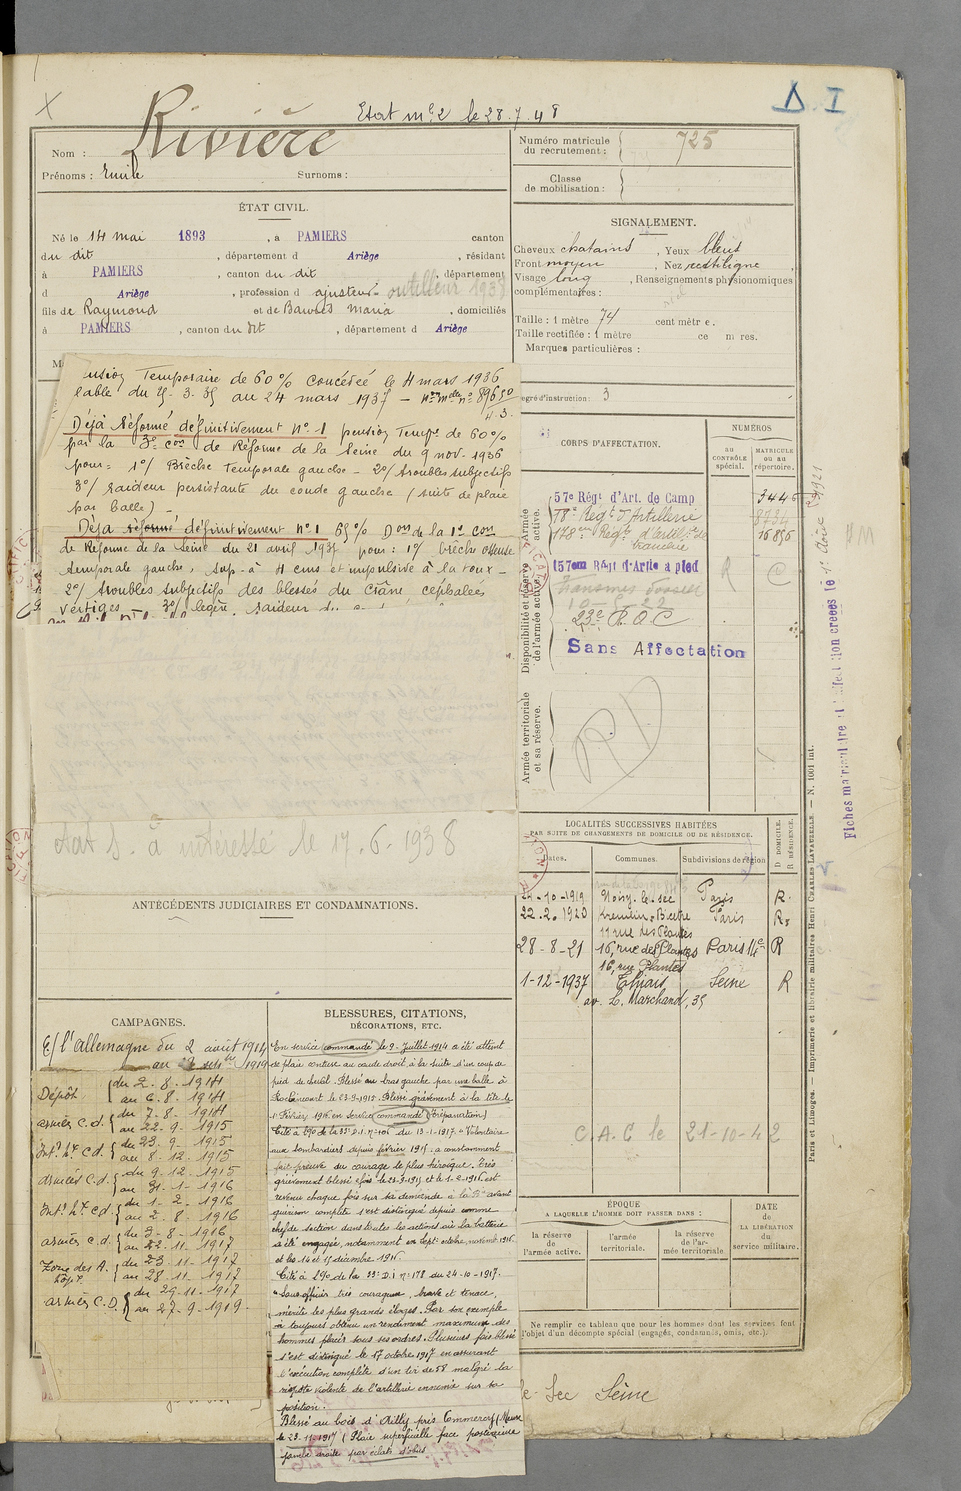 Etat mle 2 le 28.7.48
D. I
Nom : Rivière
Prénoms : Emile Surnoms :
Numéro matricule
du recrutement : 725
Classe
de mobilisation :
ÉTAT CIVIL.
Né le 14 mai 1893, à PAMIERS canton
du dit, département d Ariège, résidant
à PAMIERS, canton du dit, département
d Ariège, profession d ajusteur outilleur 1938
fils de Raymond et de Maria, domiciliés
à PAMIERS, canton du dit, département d Ariège
SIGNALEMENT.
Cheveux chatains, Yeux bleus
Front moyen, Nez rectiligne,
Visage long, Renseignements physionomiques
complémentaires :
Taille : 1 mètre 74 centimètre.
Taille rectifiée : 1 mètre ce m res.
Marques particulières :
egré d'instruction : 3
ension Temporaire de 60% concédée le 4 mars 1936
lable du 25.3.35 au 24 mars 1937
Déjà réformé définitivement N° 1 pension Temp. de 60%
par la 3e con de Réforme de la Seine du 9 nov. 1936
pour= 1°/ Brèche Temporale gauche - 2°/ troubles subjectifs
3°/ raideur persistante du coude gauche (suite de plaie
par balle) -
Déjà réformé définitivement n° 1 65% Don de la 1e con
de Réforme de la Seine du 21 avril 1935 pour : 1°/ brèche osseuse
temporale gauche, sup. à 4 cms et impulsive à la toux -
2°/ troubles subjectifs des blessés du Crâne céphalées
vertiges - 3°/ légère raideur
Etat S. à intéressé le 17.6.1938
CORPS D'AFFECTATION.
NUMÉROS
AU
CONTRÔLE
spécial.
MATRICULE
ou au
répertoire.
Armée
active.
57e Régt d'Art. de Camp 3446
78e Régt d'Artillerie 8734
178e Régt d'Artie de
tranchée 16856
Disponibilité et réserve
de l'armée active.
157eme Régt d'Artie à pied
23e R.O.C
Sans Affectation
Armée territoriale
et sa réserve.
RD
LOCALITÉS SUCCESSIVES HABITÉES
PAR SUITE DE CHANGEMENTS DE DOMICILE OU DE RÉSIDENCE.
Dates. Communes. Subdivisions de région
D. DOMICILE.
R. RÉSIDENCE.
-10-1919 Noisy-le-sec Paris R.
22.2.1920 Kremlin-Bicêtre Paris R.
11 rue des Plantes
28-8-21 16, rue des Plantes Paris 14e R
16, rue Plantes
1-12-1937 Thiais Seine R
av. L. Marchand, 35
C.A.C le 21-10-42
ANTÉCÉDENTS JUDICIAIRES ET CONDAMNATIONS.
CAMPAGNES.
C/ l'allemagne du 2 août 1914
au 1919
Dépôt du 2.8.1914
au 6.8.1914
armées C.d. du 7.8.1914
au 22.9.1915
Int. bse C.d. du 23.9.1915
au 8.12.1915
armées C.d. du 9.12.1915
au 31.1.1916
Int. bse C.d. du 1.2.1916
au 2.8.1916
armées C.d. du 3.8.1916
au 22.11.1917
Zone des A. du 23.11.1917
hôp. au 28.11.1917
armées C.D. du 29.11.1917
au 27.9.1919.
BLESSURES, CITATIONS,
DÉCORATIONS, ETC.
En service commandé le 2 Juillet 1914 a été atteint
de plaie contuse au coude droit à la suite d'un coup de
pied de cheval. Blessé au bras gauche par une balle à
Roclincourt le 23.9.1915. Blessé grièvement à la tête le
1er Février 1916 en service commandé (trépanation)
Cité à l'O de la 33e D.I n° 106 du 13-1-1917. "Volontaire
aux bombardiers depuis février 1915 : a constamment
fait preuve du courage le plus héroïque. Très
grièvement blessé 2 fois le 23-9-1915 et le 1-2-1916 est
revenu chaque fois sur sa demande à la Bie avant
guérison complète s'est distingué depuis comme
chef de section dans toutes les actions où la batterie
a été engagée, notamment en Sept. octobre, novembre 1916
et les 14 et 15 décembre 1916.
Cité à l'O de la 33e D.I n° 178 du 24-10-1917.
"Sous-officier très courageux, brave et tenace,
mérite les plus grands éloges. Par son exemple
a toujours obtenu un rendement maximum des
hommes placés sous ses ordres. Plusieurs fois blessé
s'est distingué le 17 octobre 1917 en assurant
l'exécution complète d'un tir de 58 malgré la
riposte violente de l'artillerie ennemie sur sa
position.
Blessé au bois d'Ailly près Commercy (Meuse
le 23-11-1917 (Plaie superficielle face postérieure
jambe droite par éclats d'obus
ÉPOQUE
A LAQUELLE L'HOMME DOIT PASSER DANS :
la réserve
de
l'armée active.
l'armée
territoriale.
la réserve
de l'ar-
mée territoriale
DATE
de
LA LIBÉRATION
du
service militaire.
Ne remplir ce tableau que pour les hommes dont les services font
l'objet d'un décompte spécial (engagés, condamnés, omis, etc.).
le-Sec Seine
Paris et Limoges. — Imprimerie et librairie militaires Henri CHARLES-LAVAUZELLE. — N. 1001 int.
Fiches matriculaire et d'affectation créées le 1er Août 1921